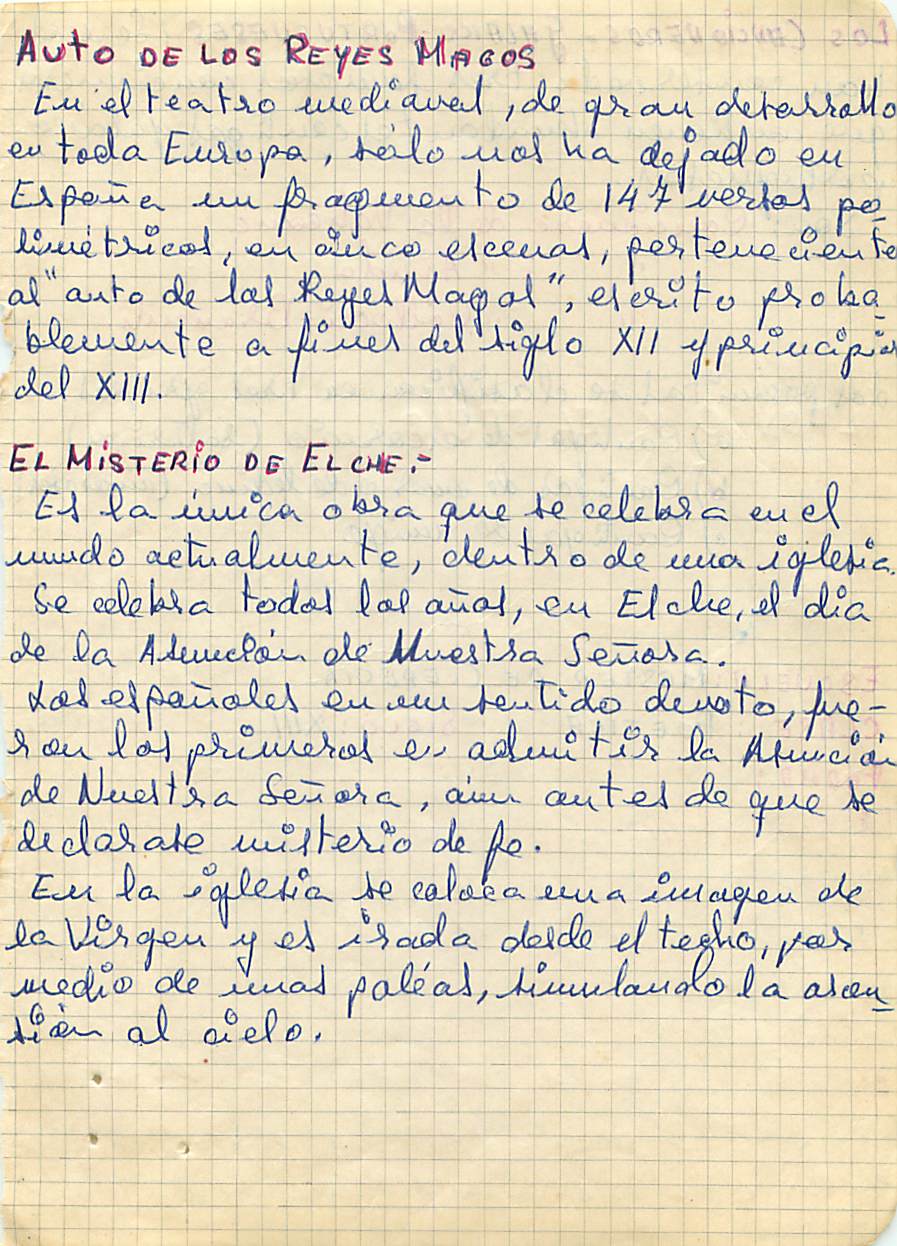 AUTO DE LOS REYES MAGOS
En el teatro mediaval, de gran desarrollo
en toda Europa, sólo nos ha dejado en
España un fragmento de 147 versos po_
limétricos, en cinco escenas, perteneciente
al "auto de los Reyes Magos", escrito proba_
blemente a fines del siglo XII y principios
del XIII.
EL MISTERIO DE ELCHE.-
Es la única obra que se celebra en el
mundo actualmente, dentro de una iglesia.
Se celebra todos los años, en Elche, el día
de la Asunción de Nuestra Señora.
Los españoles en un sentido devoto, fue-
ron los primeros en admitir la Asunción
de Nuestra Señora, aun antes de que se
declarase misterio de fe.
En la iglesia se coloca una imagen de
la Virgen y es izada desde el techo, por
medio de unas poléas, simulando la ascen_
sión al cielo.